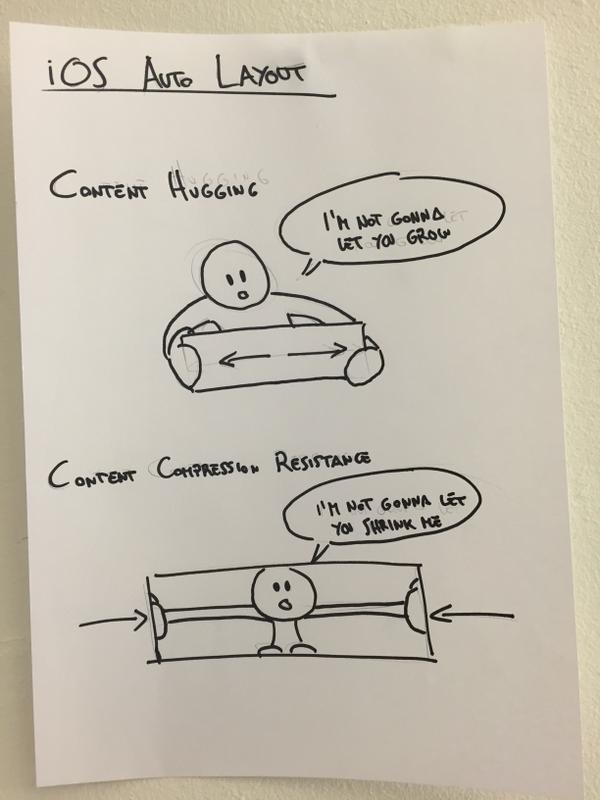 iOS AUTO LAYOUT
CONTENT HUGGING
I'M NOT GONNA
LET YOU GROW
CONTENT COMPRESSION RESISTANCE
I'M NOT GONNA LET
YOU SHRINK ME